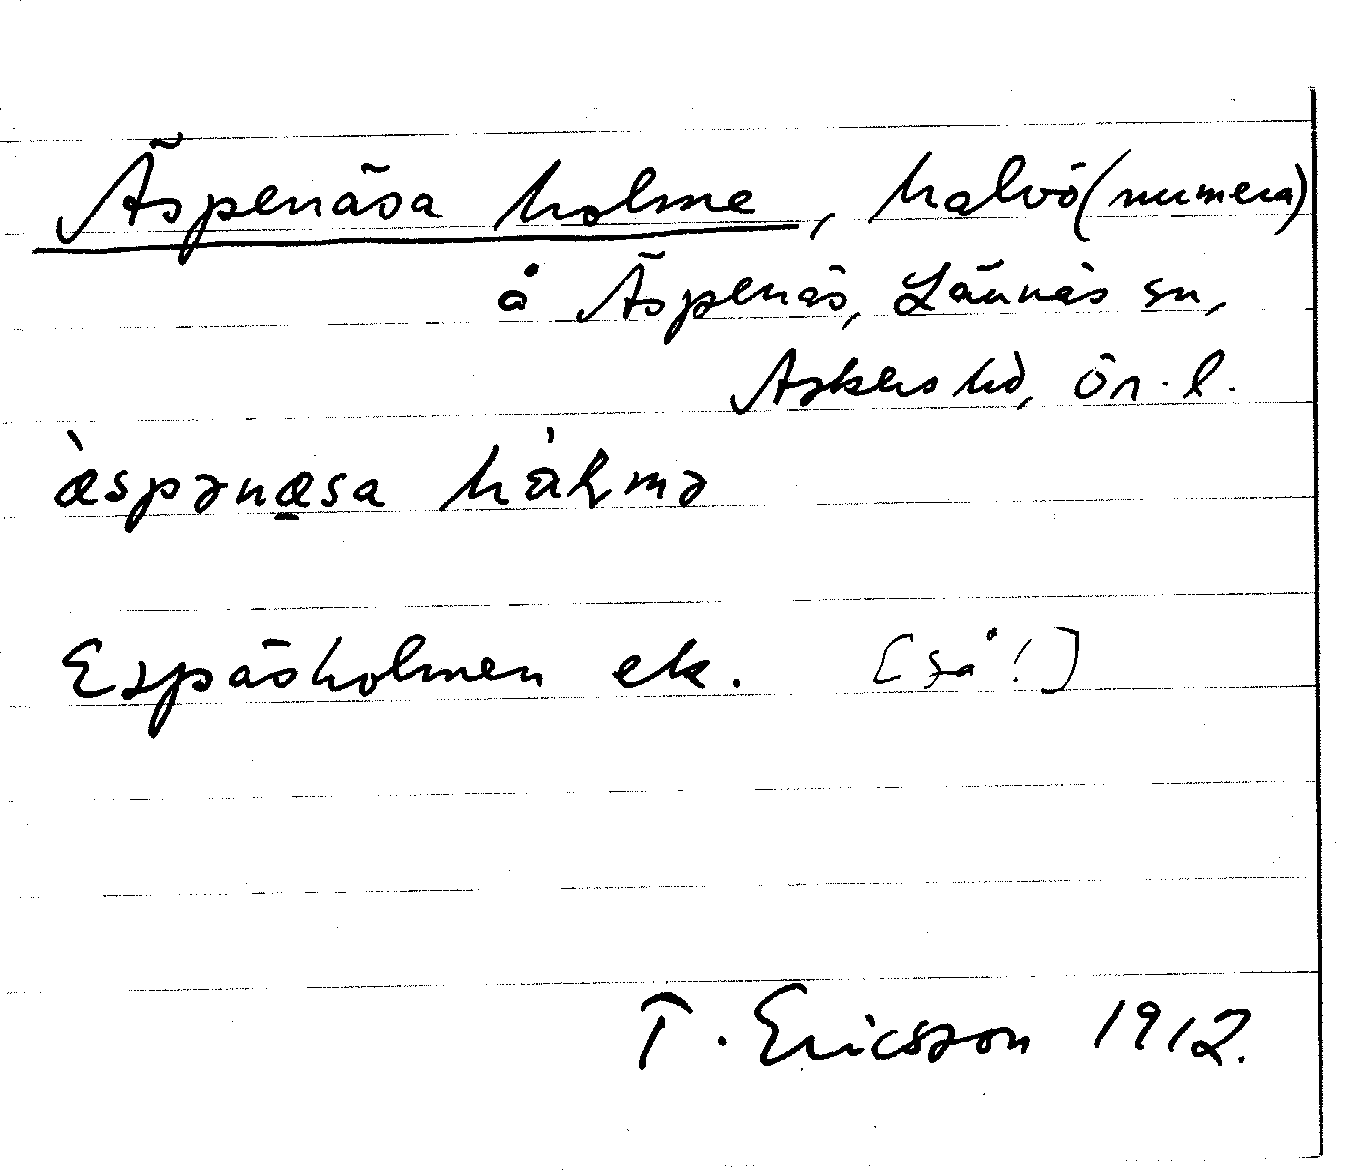 Äspenäsa holme, halvö (numera)
å Äspenäs, Lännäs sn,
Askers hd, Ör. l.
æ̀spənæsa hål̀mə
Espäsholmen ek. [så!]
T. Ericsson 1912.